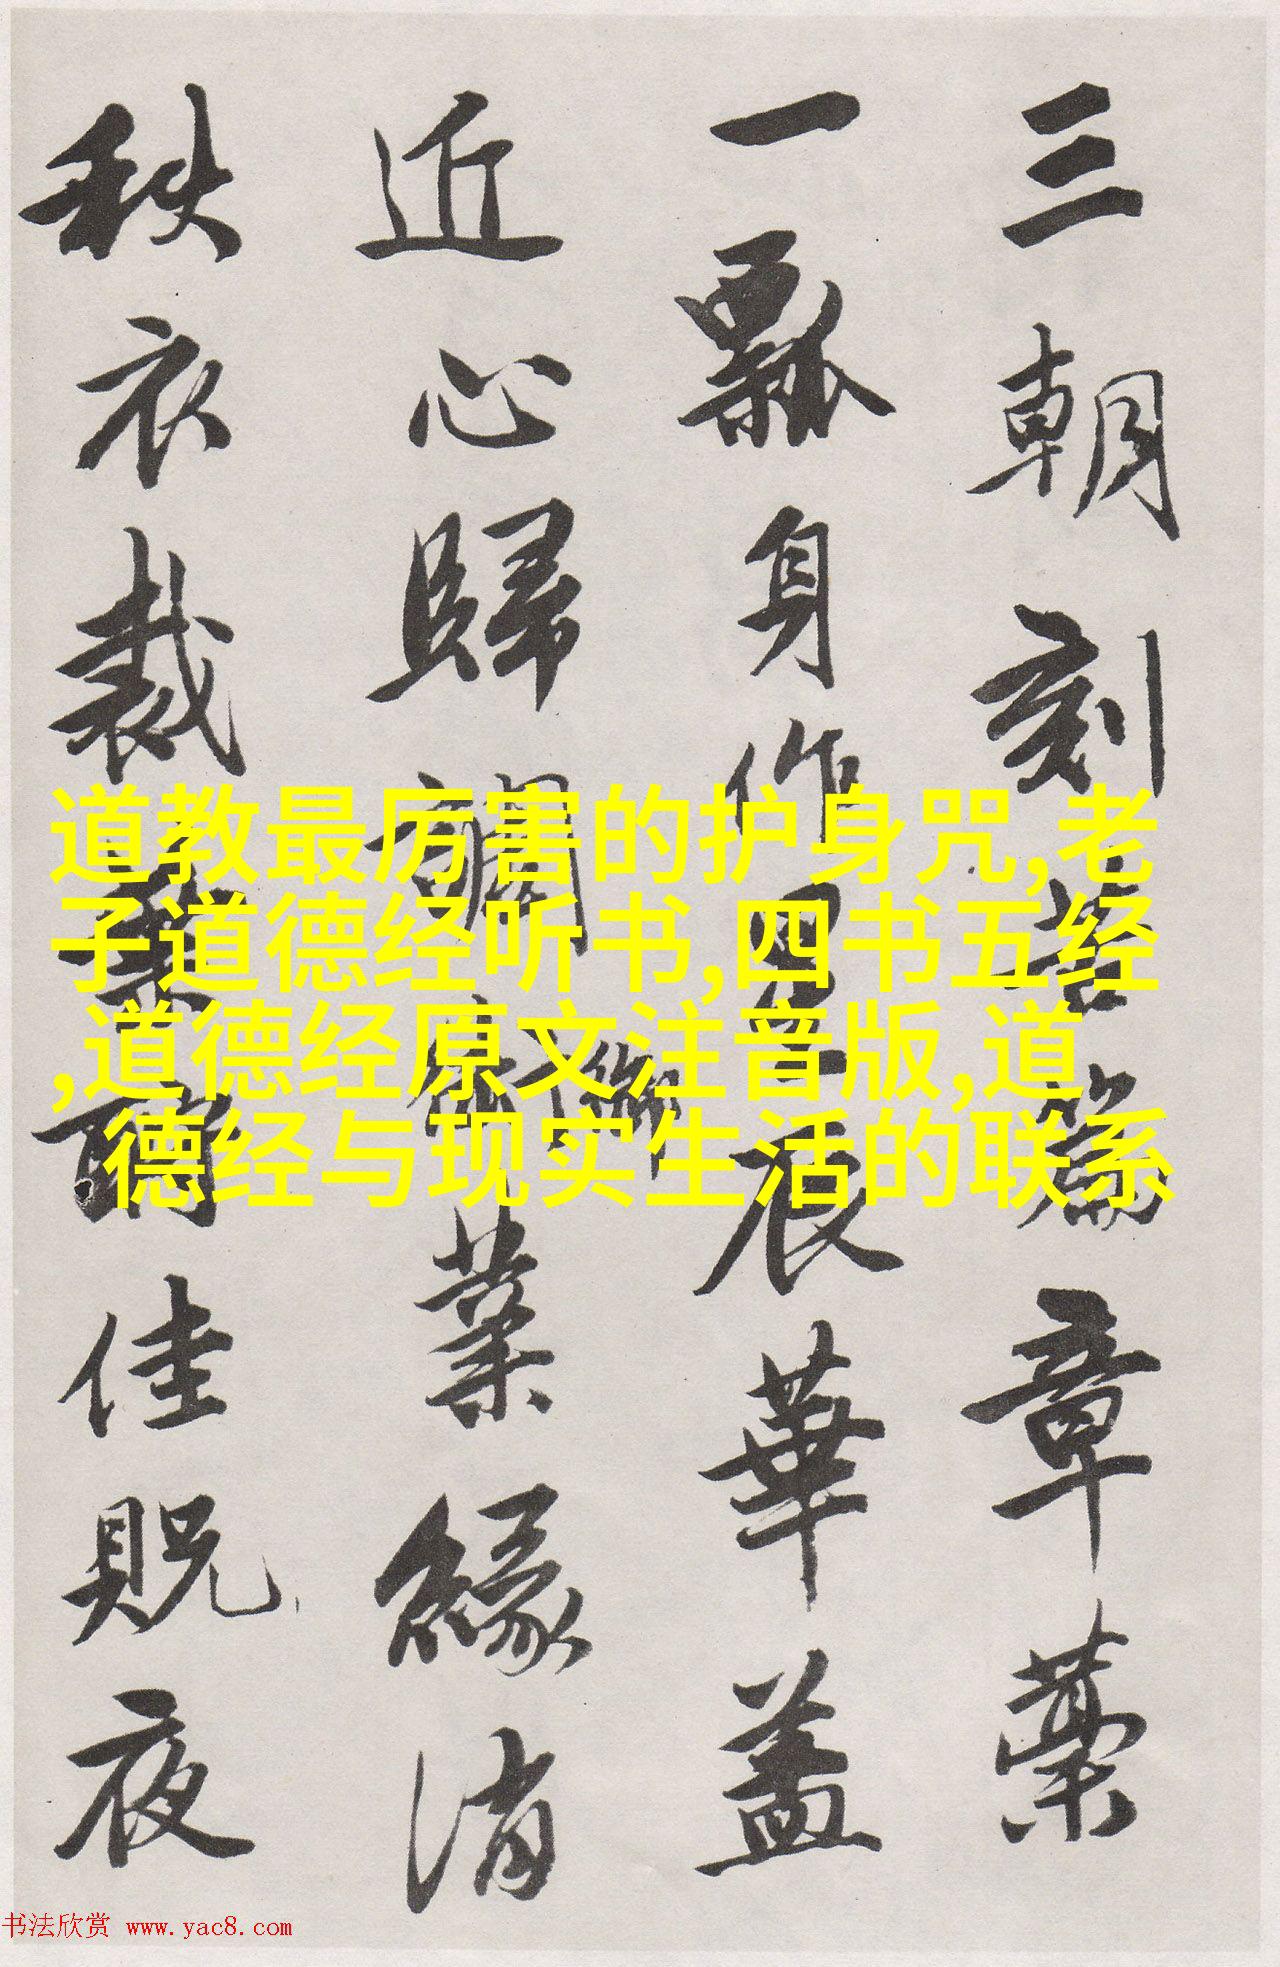 三朝刻篇章藁
一瓢身作辰華蓋
近心歸業緣消
秩衣裁佳貺夜
道教最厉害的护身咒,老
子道德经听书,四书五经
,道德经原文注音版,道
德经与现实生活的联系
书法欣赏 www.yac8.com